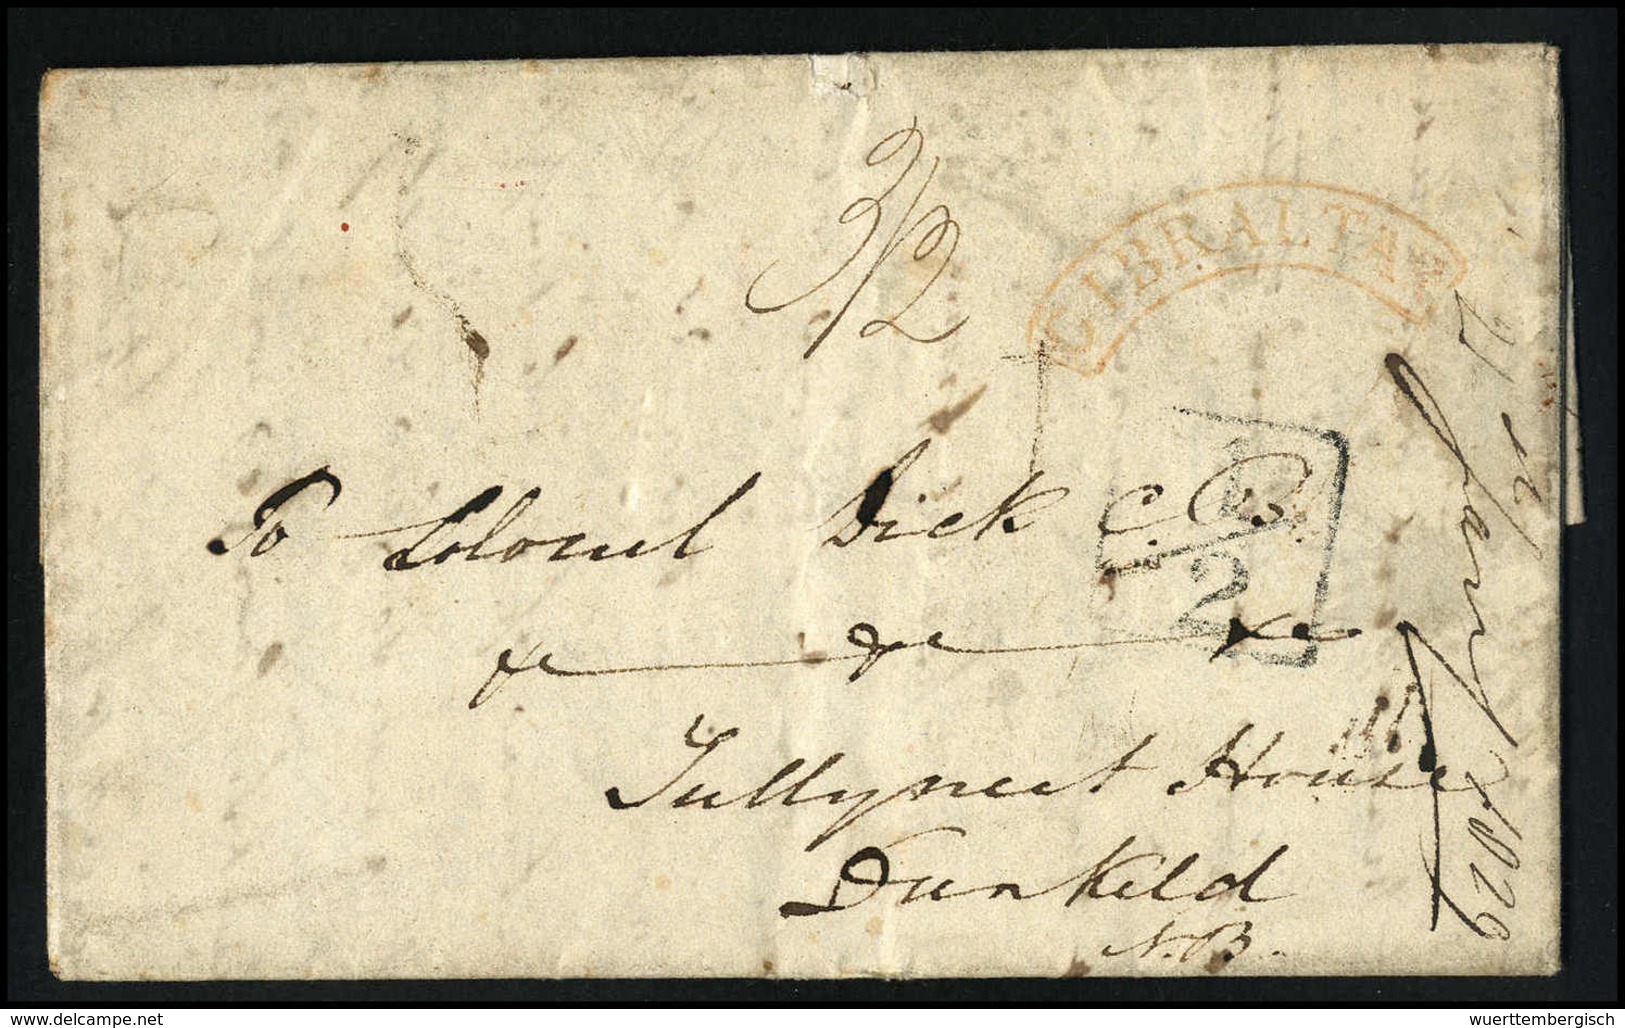 3/2
GIBRALTAR
To Colonel Dick C.B.
1/2
&c &c &c
Tullymet House
Dunkeld
N.B.
Jany 1829
www.delcampe.net
wuerttembergisch